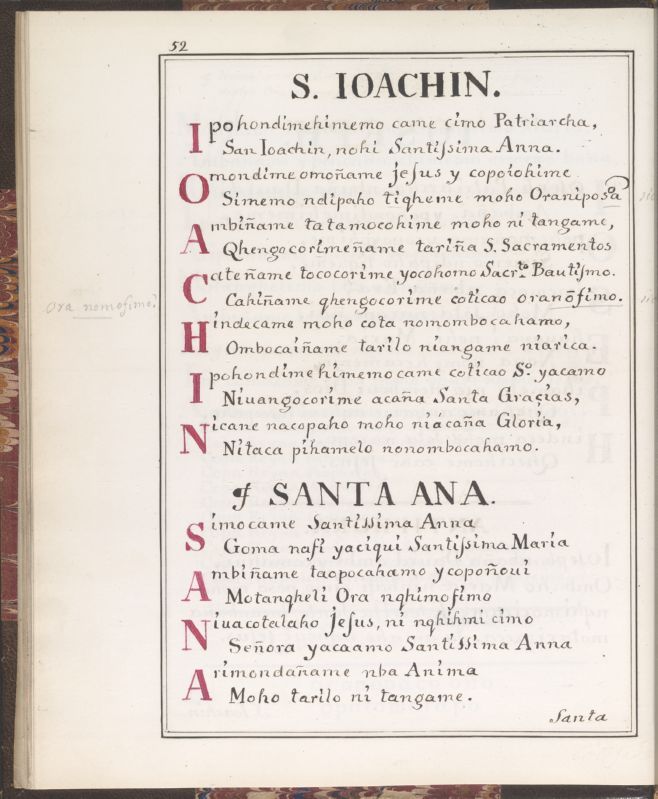 52
S. IOACHIN.
Ipohondimehimemo came cimo Patriarcha,
San Ioachin, nohi Santiſsima Anna.
Omondime omoñame jeſus y copoiohime
Simemo ndipaho tiqheme moho Oraniposo͡a
Ambiñame tatamocohime moho ni tangame,
Qhengocorimeñame tariña S. Sacramentos
Citeñame tococorime yocohomo Sacr.to Bautiſmo.
Cahiñame qhengocorime coticao oranōſimo.
Ora nomoſimo.
Hindecame moho cota nomombocahamo,
Ombocaiñame tarilo niangame niarica.
Ipohondimehimemo came coticao S.o yacamo
Niuangocorime acaña Santa Graçias,
Nicane nacopaho moho niácaña Gloria,
Nitaca pihamelo nonombocahamo.
ꝯ SANTA ANA.
Simocame Santiſsima Anna
Goma naſi yaciqui Santiſsima Maria
Ambiñame taopocahamo ycopoñoui
Motanqheli Ora nqhimoſimo
Niuacotalaho jeſus, ni nqhihmi cimo
Señora yacaamo Santiſsima Anna
Arimondañame nba Anima
Moho tarilo ni tangame.
Santa